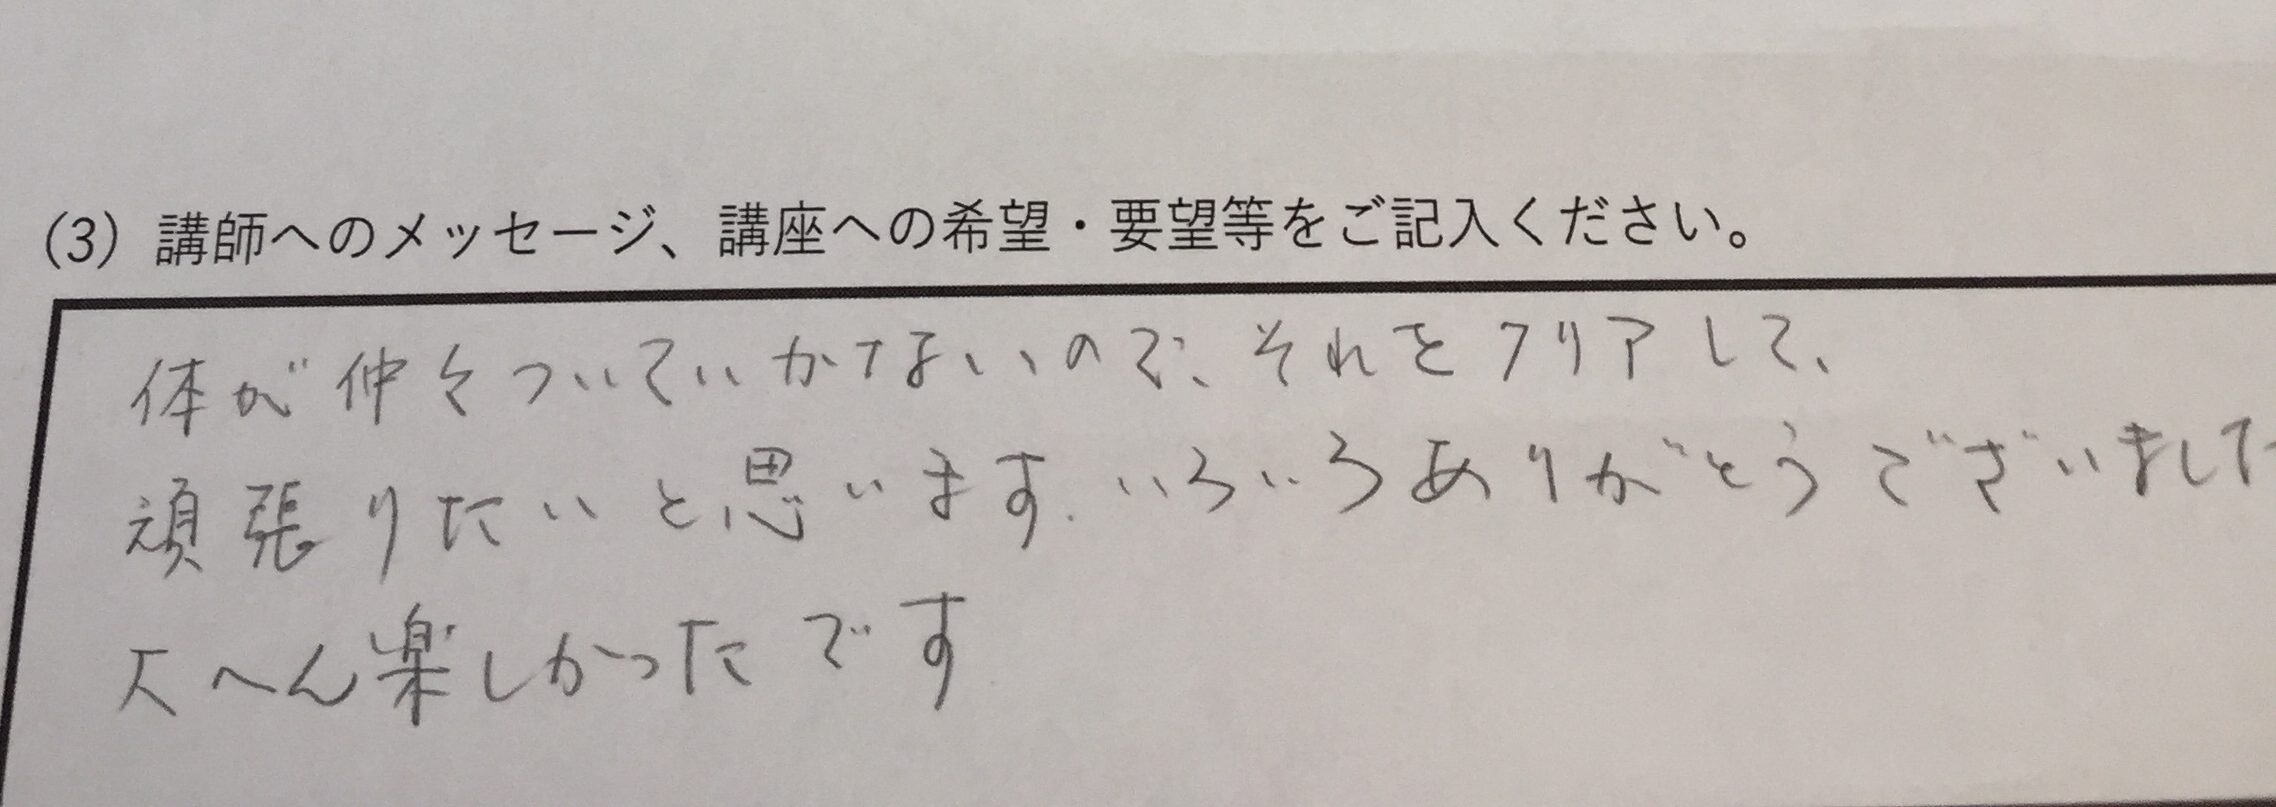 (3) 講師へのメッセージ、講座への希望・要望等をご記入ください。
体が仲々ついていかないので、それをクリアして、
頑張りたいと思います.いろいろありがとうございました
大へん楽しかったです